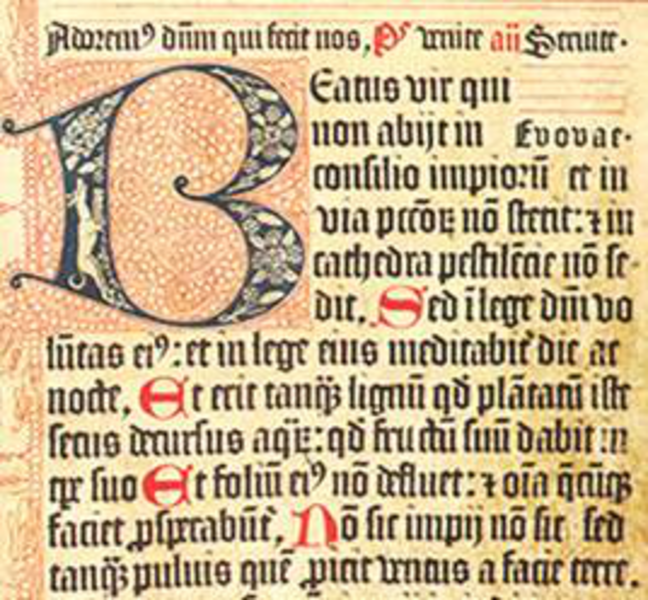 Adorem⁹ dn̄m qui fecit nos, P̄s venite an̄ Servite.
Beatus vir qui
non abijt in Evovae.
consilio impiorū et in
via pcc̄oꝝ nō stetit: ⁊ in
cathedra pestilēcie nō se-
dit. Sed ī lege dn̄i vo
lūtas ei⁹: et in lege eius meditabit̄ die ac
nocte. Et erit tanqȝ lignū qd̄ plātatū iste
secus decursus aqꝝ: qd̄ fructū suū dabit in
tꝑe suo Et foliū ei⁹ nō defluet: ⁊ oīa q̄cūqȝ
faciet ꝓsꝑabūt̄. Nō sic impij nō sic sed
tanqȝ puluis quē ꝓicit ventus a facie terre.